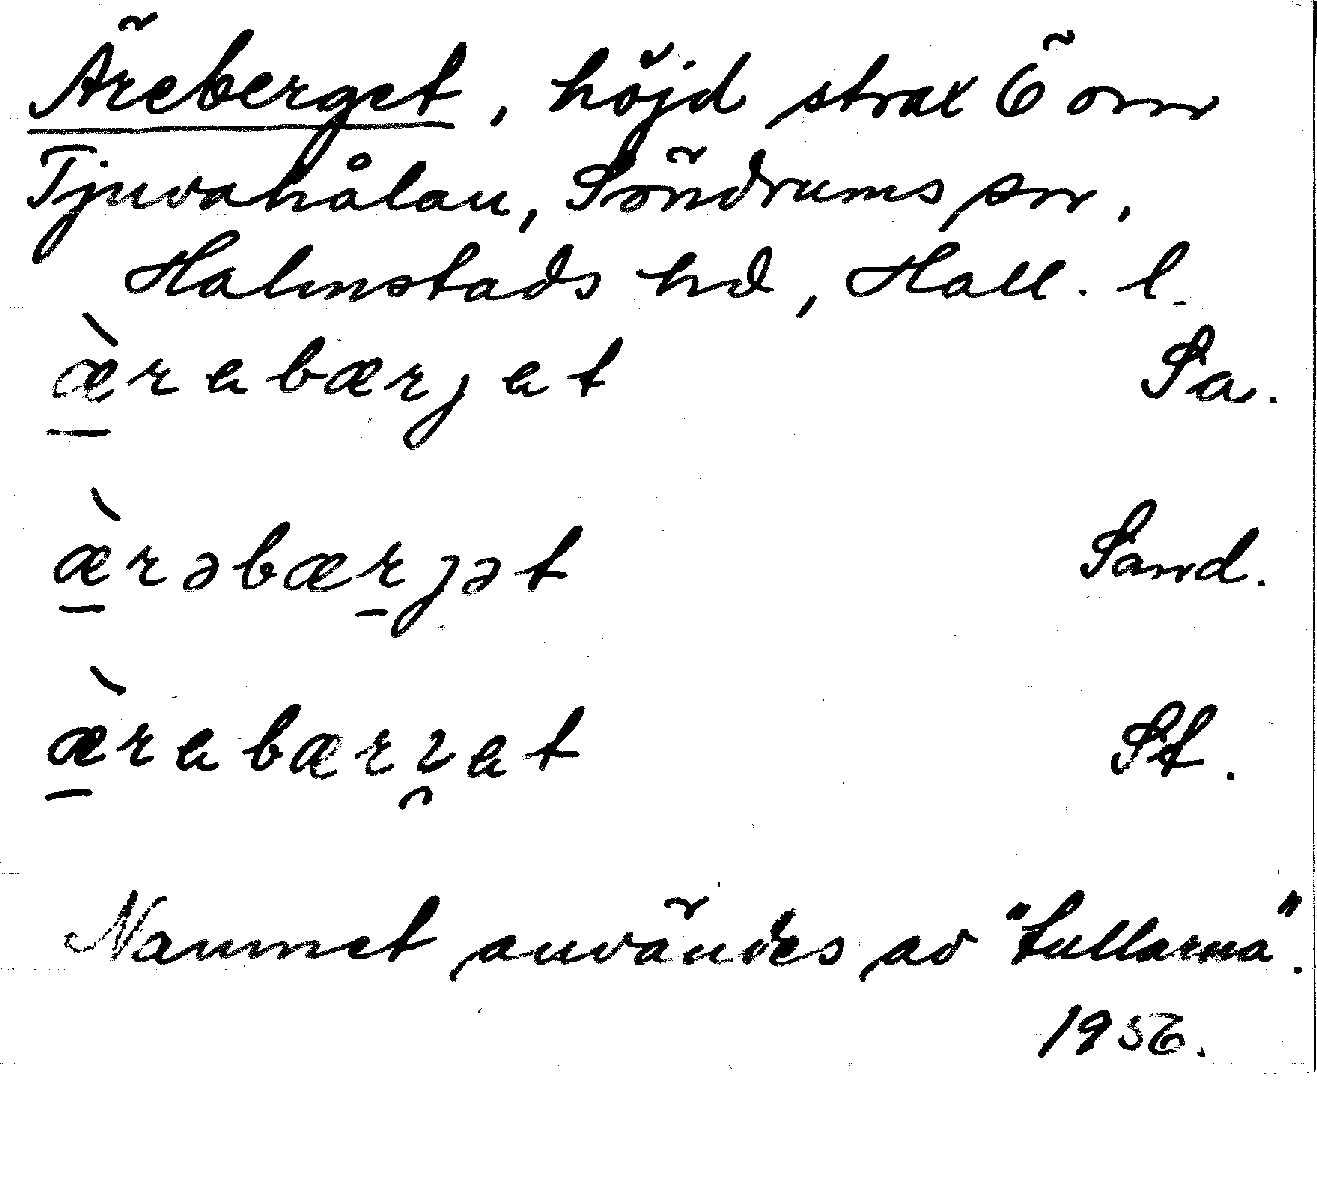 Äreberget, höjd strax Ö om
Tjuvahålan, Söndrums sn,
Halmstads hd, Hall. l.
æ̀rabærjat Sa.
æ̀rəbærjət Sand.
æ̀rabærɿat St.
Namnet användes av "tullarna".
1956.